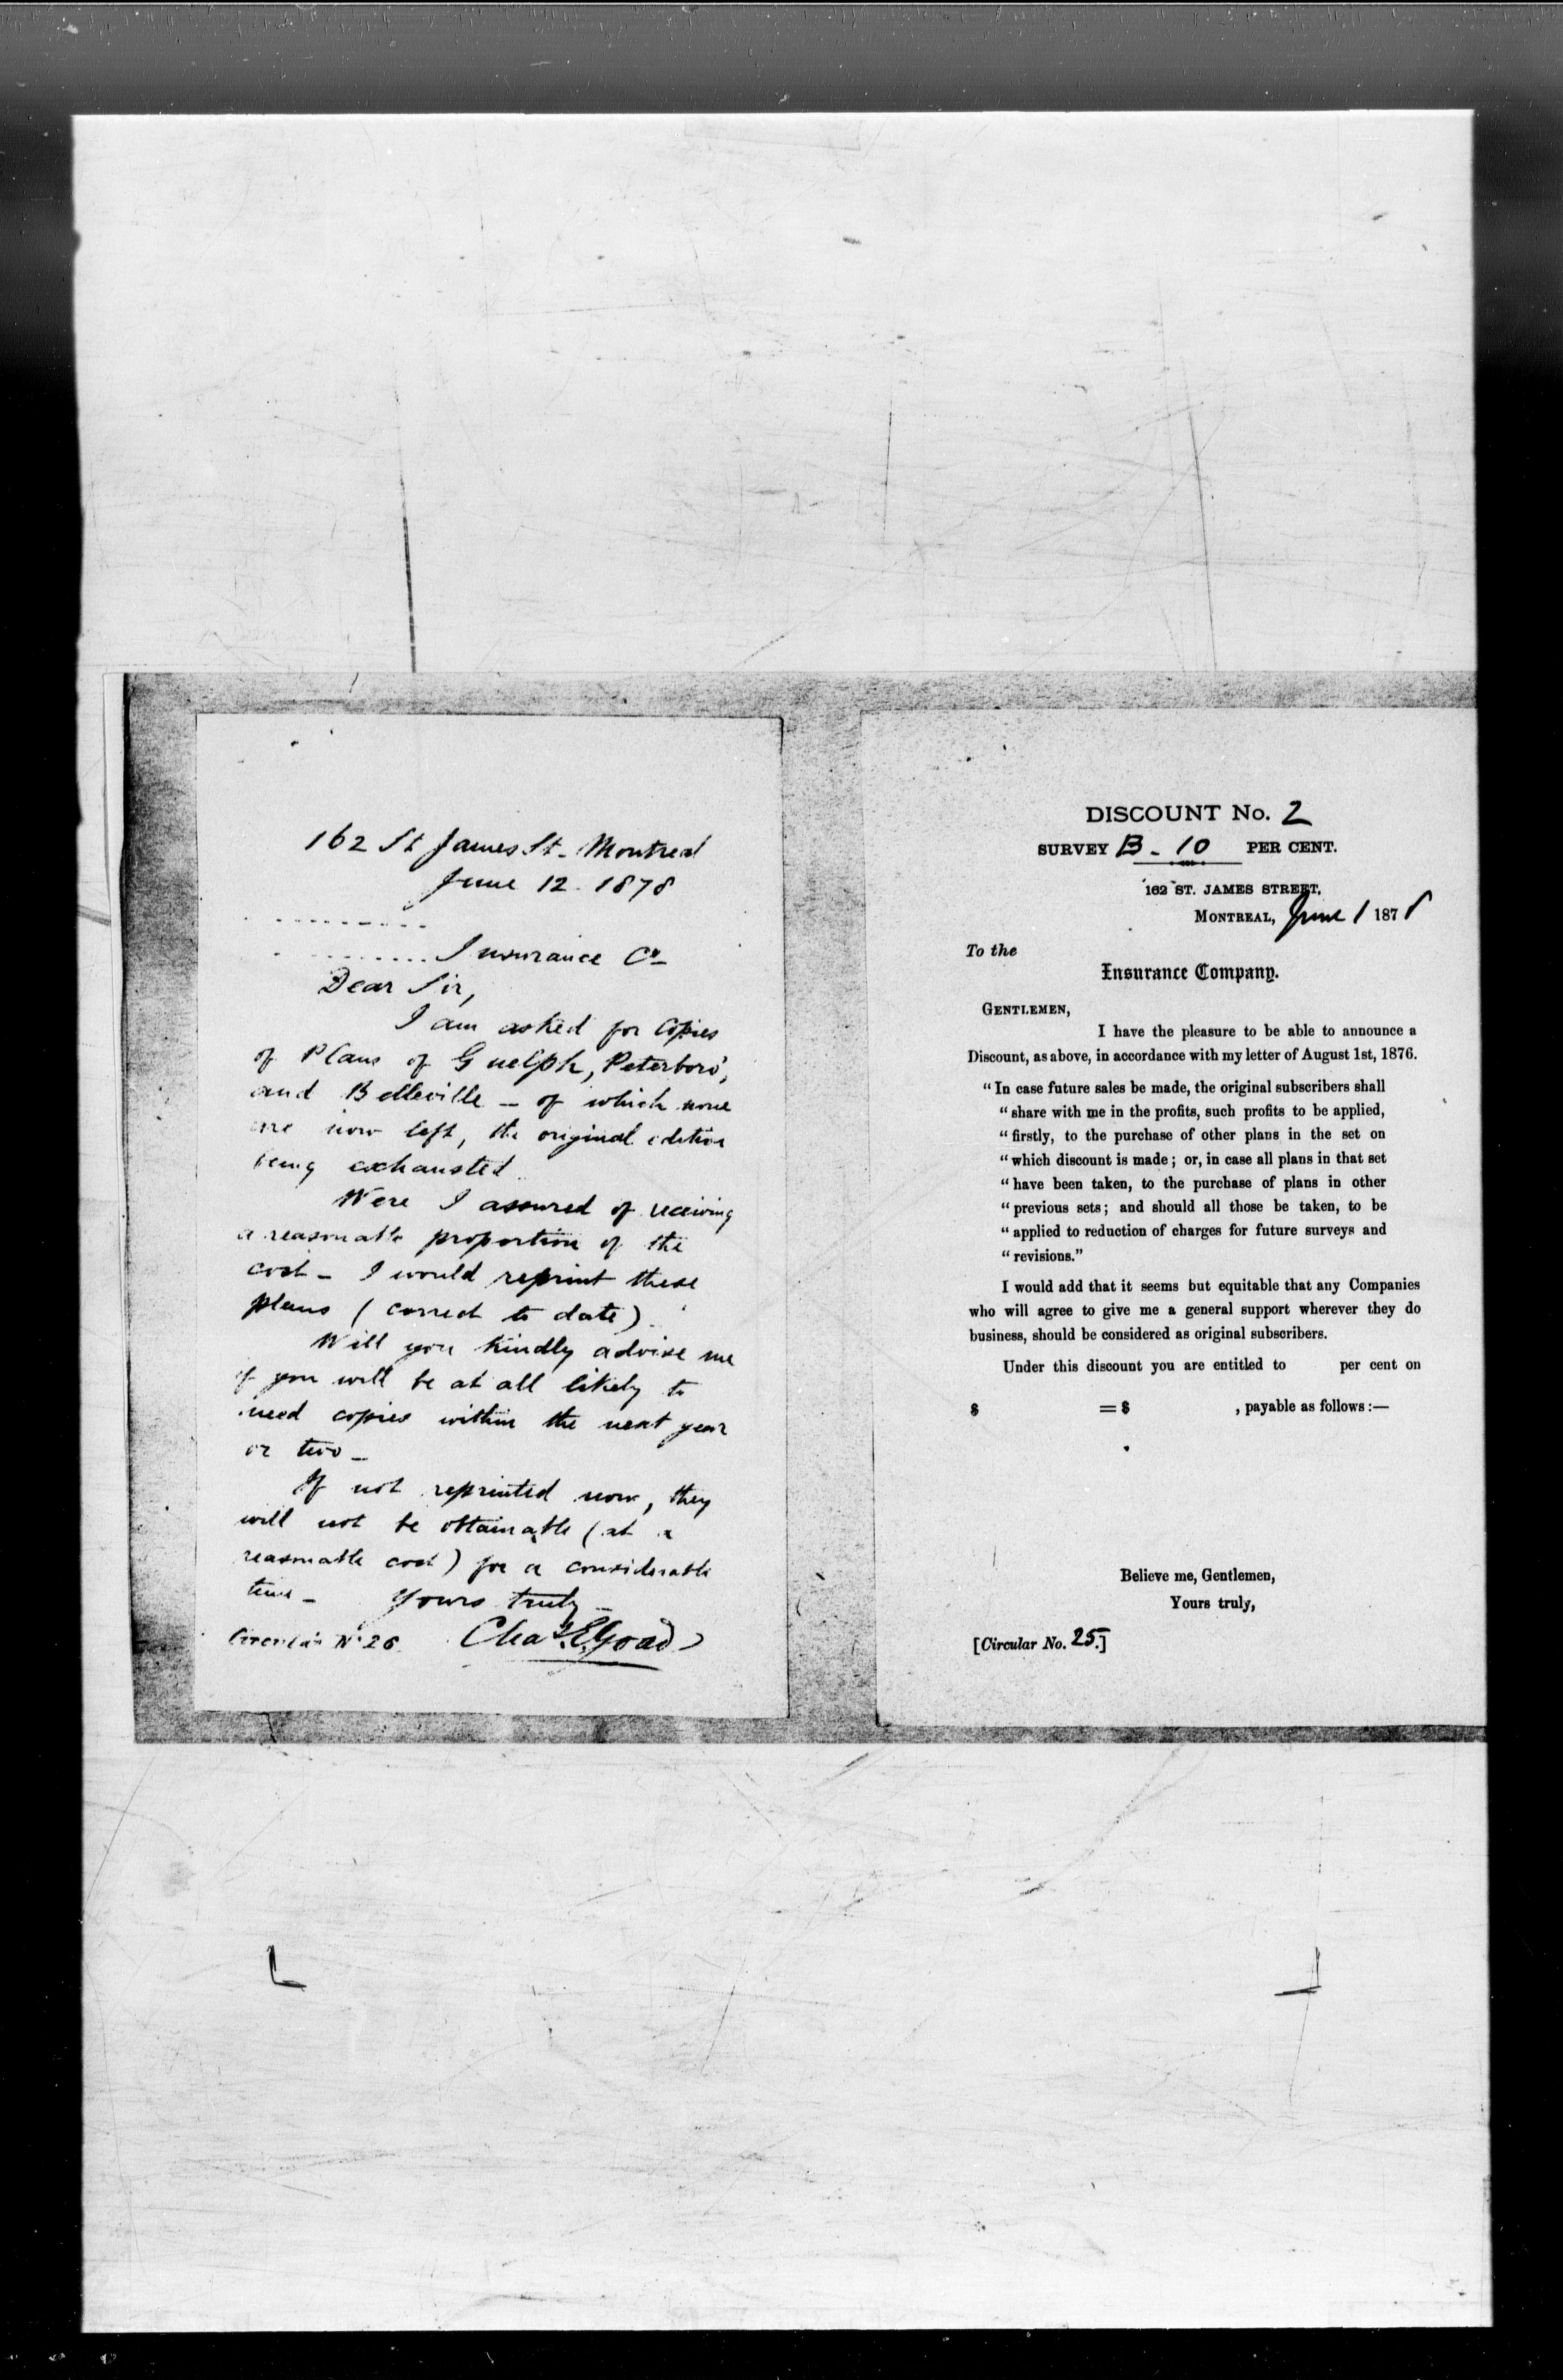 162 St James St - Montreal
June 12 - 1878
..........
.......... Insurance Co
Dear Sir,
I am asked for Copies
of Plans of Guelph, Peterboro',
and Belleville - of which none
are now left, the original edition
being exhausted.
Were I assured of receiving
a reasonable proportion of the
cost - I would reprint these
plans (correct to date).
Will you kindly advise me
if you will be at all likely to
need copies within the next year
or two -
If not reprinted now, they
will not be obtainable (at a
reasonable cost) for a considerable
time - Yours truly -
Circular No 26 Chas. E. Goad
DISCOUNT No. 2
SURVEY B - 10 PER CENT.
162 ST. JAMES STREET,
MONTREAL, June 1 1878
To the
Insurance Company.
GENTLEMEN,
I have the pleasure to be able to announce a
Discount, as above, in accordance with my letter of August 1st, 1876.
"In case future sales be made, the original subscribers shall
"share with me in the profits, such profits to be applied,
"firstly, to the purchase of other plans in the set on
"which discount is made; or, in case all plans in that set
"have been taken, to the purchase of plans in other
"previous sets; and should all those be taken, to be
"applied to reduction of charges for future surveys and
"revisions."
I would add that it seems but equitable that any Companies
who will agree to give me a general support wherever they do
business, should be considered as original subscribers.
Under this discount you are entitled to per cent on
$ = $ , payable as follows:—
Believe me, Gentlemen,
Yours truly,
[Circular No. 25.]